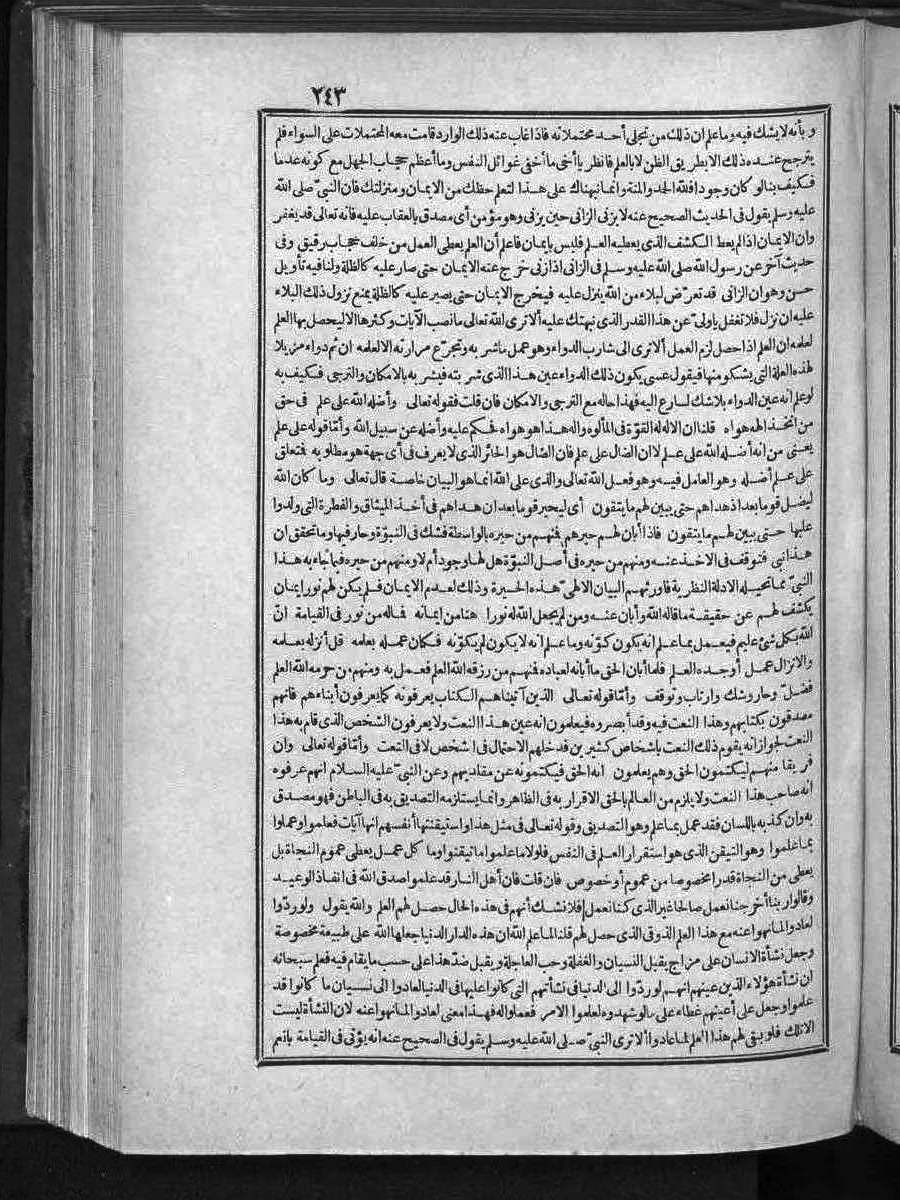 ٢٤٣
وبأنه لا يشك فيه وما علم ان ذلك من تجلى أحد محتملاته فاذا غاب عنه ذلك الوارد قامت معه المحتملات على السواء فلم
يترجح عنده ذلك الا بطريق الظن لا بالعلم فانظر يا أخى ما أخفى غوائل النفس وما أعظم حجاب الجهل مع كونه عدما
فكيف بنا لو كان وجودا فلله الحمد والمنة وانما نبهناك على هذا لتعلم حظك من الايمان ومنزلتك فان النبىّ صلى الله
عليه وسلم يقول فى الحديث الصحيح عنه لا يزنى الزانى حين يزنى وهو مؤمن أى مصدق بالعقاب عليه فانه تعالى قد يغفر
وان الايمان اذا لم يعط الكشف الذى يعطيه العلم فليس بايمان فاعلم أن العلم يعطى العمل من خلف حجاب رقيق وفى
حديث آخر عن رسول الله صلى الله عليه وسلم فى الزانى اذا زنى خرج عنه الايمان حتى صار عليه كالظلة ولنا فيه تأويل
حسن وهو ان الزانى قد تعرّض لبلاء من الله ينزل عليه فيخرج الايمان حتى يصير عليه كالظلة يمنع نزول ذلك البلاء
عليه ان نزل فلا تغفل ياولىّ عن هذا القدر الذى نبهتك عليه ألا ترى الله تعالى ما نصب الآيات وكثرها الا ليحصل بها العلم
لعلمه ان العلم اذا حصل لزم العمل ألا ترى الى شارب الدواء وهو عمل ما شربه وتجرّع مرارته الا لعلمه ان ثم دواء مزيلا
لهذه العلة التى يشكو منها فيقول عسى يكون ذلك الدواء عين هذا الذى شربته فيشربه بالامكان والترجى فكيف به
لو علم انه عين الدواء بلا شك لسارع اليه فهذا حاله مع الترجى والامكان فان قلت فقوله تعالى وأضله الله على علم فى حق
من اتخذ الهه هواه قلنا ان الاله له القوّة فى المألوه واله هذا هو هواه فحكم عليه وأضله عن سبيل الله وأمّا قوله على علم
يعنى من انه أضله الله على علم لا ان الضال على علم فان الضال هو الحائر الذى لا يعرف فى أى جهة هو مطلوبه فتعلق
على علم أضله وهو العامل فيه وهو فعل الله تعالى والذى على الله انما هو البيان خاصة قال تعالى وما كان الله
ليضل قوما بعد اذ هداهم حتى يبين لهم ما يتقون أى ليحير قوما بعد ان هداهم فى أخذ الميثاق والفطرة التى ولدوا
عليها حتى يبين لهم ما يتقون فاذا أبان لهم حيرهم فمنهم من حيره بالواسطة فشك فى النبوّة وحار فيها وما تحقق ان
هذا نبى فتوقف فى الاخذ عنه ومنهم من حيره فى أصل النبوّة هل لها وجود أم لا ومنهم من حيره فيما جاء به هذا
النبىّ مما تحيله الادلة النظرية فأورثهم البيان الالهىّ هذه الحيرة وذلك لعدم الايمان فلم يكن لهم نور ايمان
يكشف لهم عن حقيقة ما قاله الله وأبان عنه ومن لم يجعل الله له نورا هنا من ايمانه فماله من نور فى القيامة انّ
الله بكل شئ عليم فيعمل بما علم انه يكون كوّنه وما علم انه لا يكون لم يكوّنه فكان عمله بعلمه قل أنزله بعلمه
والانزال عمل أوجده العلم فلما أبان الحق ما أبانه لعباده فمنهم من رزقه الله العلم فعمل به ومنهم من حرمه الله العلم
فضلّ وحار وشك وارتاب وتوقف وأمّا قوله تعالى الذين آتيناهم الكتاب يعرفونه كما يعرفون أبناءهم فانهم
مصدقون بكتابهم وهذا النعت فيه وقد أبصروه فيعلمون انه عين هذا النعت ولا يعرفون الشخص الذى قام به هذا
النعت لجواز انه يقوم ذلك النعت باشخاص كثيرين فدخلهم الاحتمال فى الشخص لا فى النعت وأمّا قوله تعالى وان
فريقا منهم ليكتمون الحق وهم يعلمون انه الحق فيكتمونه عن مقلديهم وعن النبىّ عليه السلام انهم عرفوه
أنه صاحب هذا النعت ولا يلزم من العالم بالحق الاقرار به فى الظاهر وانما يستلزمه التصديق به فى الباطن فهو مصدق
به وان كذبه باللسان فقد عمل بما علم وهو التصديق وقوله تعالى فى مثل هذا واستيقنتها أنفسهم انها آيات فعلموا وعملوا
بما علموا وهو التيقن الذى هو استقرار العلم فى النفس فلولا ما علموا ما تيقنوا وما كل عمل يعطى عموم النجاة بل
يعطى من النجاة قدرا مخصوصا من عموم أو خصوص فان قلت فان أهل النار قد علموا صدق الله فى انفاذ الوعيد
وقالوا ربنا أخرجنا نعمل صالحا غير الذى كنا نعمل فلا نشك أنهم فى هذه الحال حصل لهم العلم والله يقول ولو ردّوا
لعادوا لما نهوا عنه مع هذا العلم الذوقى الذى حصل لهم قلنا لما علم الله ان هذه الدار الدنيا جعلها الله على طبيعة مخصوصة
وجعل نشأة الانسان على مزاج يقبل النسيان والغفلة وحب العاجلة ويقبل ضدّ هذا على حسب ما يقام فيه فعلم سبحانه
ان نشأة هؤلاء الذين عينهم انهم لو ردّوا الى الدنيا فى نشأتهم التى كانوا عليها فى الدنيا لعادوا الى نسيان ما كانوا قد
علموا وجعل على أعينهم غطاء على ما لو شهدوه لعلموا الامر فعملوا له فهذا معنى لعادوا لما نهوا عنه لان النشأة ليست
الا تلك فلو بقى لهم هذا العلم لما عادوا ألا ترى النبىّ صلى الله عليه وسلم يقول فى الصحيح عنه انه يؤتى فى القيامة بانعم